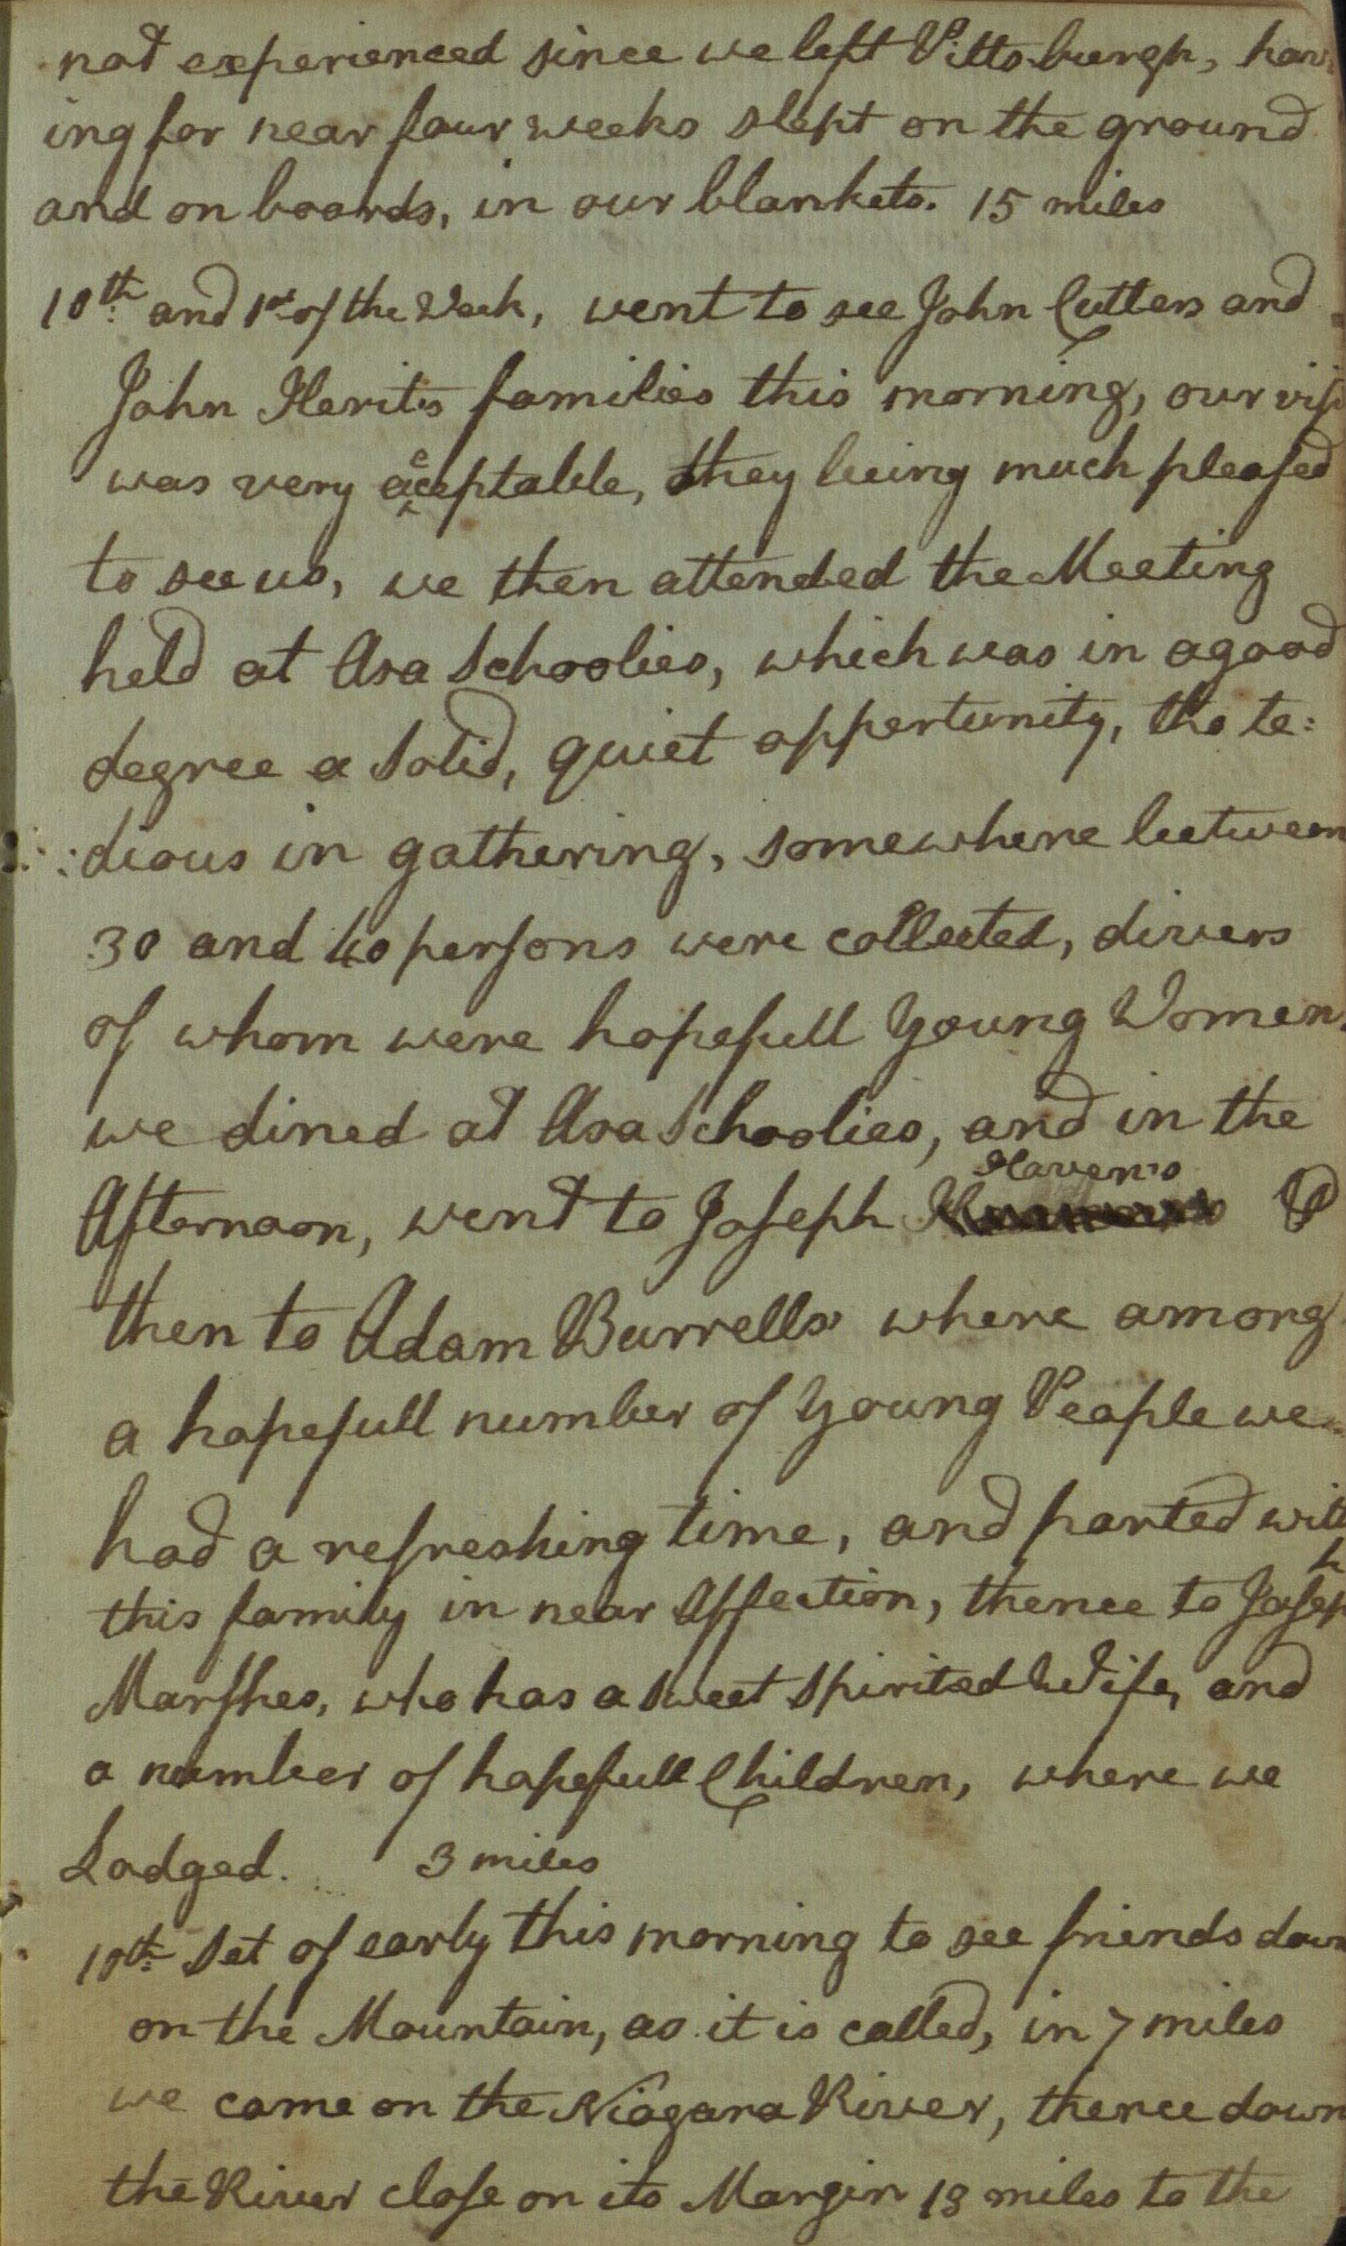 not experienced since we left Pittsburgh, hav
ing for near four weeks slept on the ground
and on boards, in our blankets. 15 miles
10th and 1st of the Week, went to see John Cutlers and
John Herits families this morning, our visi
was very acceptable, they being much pleased
to see us, we then attended the Meeting
held at Asa Schoolies, which was in a good
degree a solid, quiet oppertunity, tho te:
:dious in gathering, somewhere between
30 and 40 persons were collected, divers
of whom were hopefull Young Women.
we dined at Asa Schoolies, and in the
Haven's
Afternoon, went to Joseph
then to Adam Burrells where among
a hopefull number of Young People we
had a refreshing time, and parted with
this family in near Affection, thence to Joseph
Marshes, who has a sweet spirited Wife, and
a number of hopefull Children, where we
Lodged. 3 miles
Set of early this morning to see friends down
on the Mountain, as it is called, in 7 miles
we came on the Niagara River, thence down
the River close on its Margin 18 miles to the